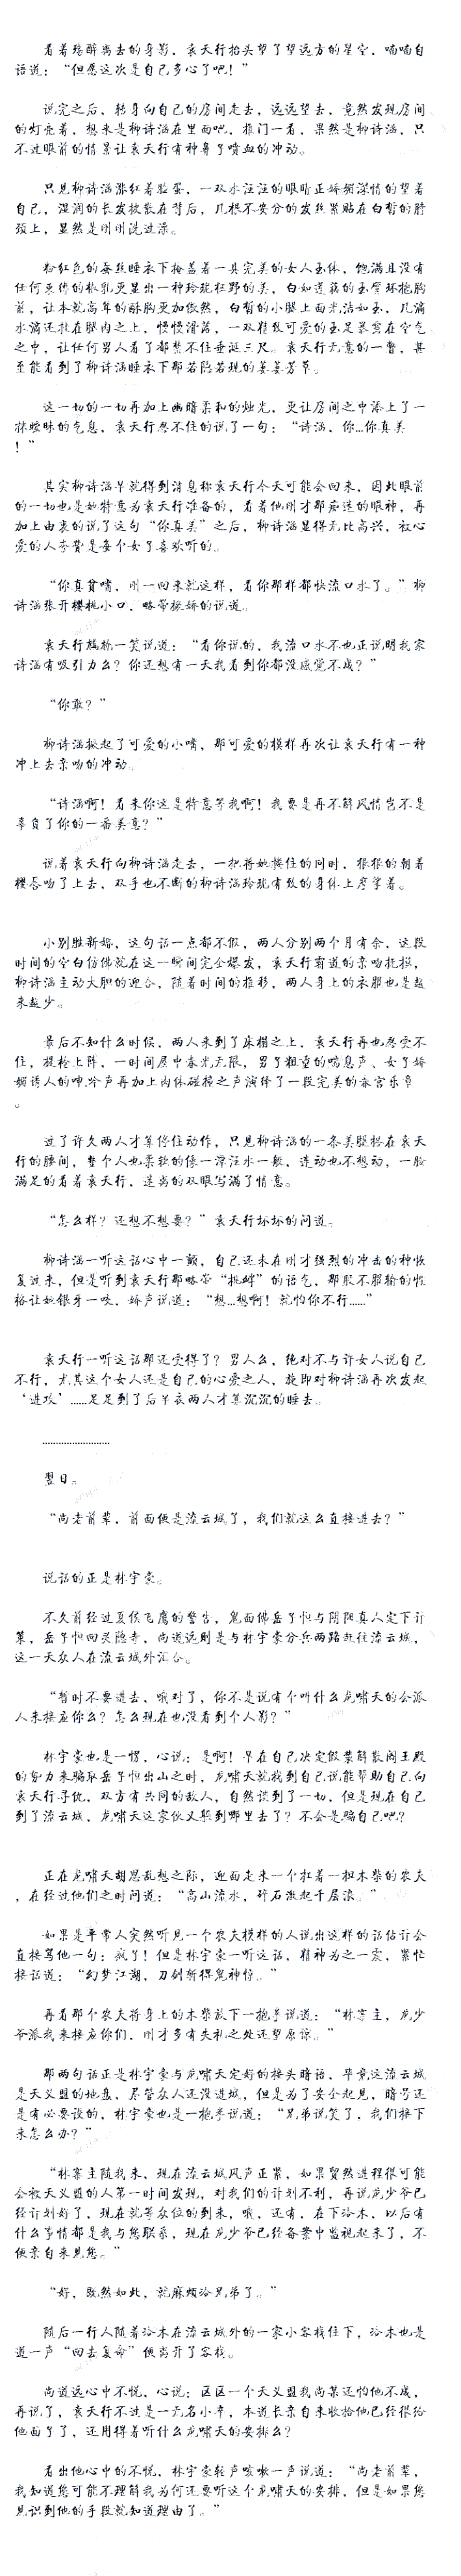 看着玛醉离去的身影，袁天行抬头望了望远方的星空，喃喃自
语道：“但愿这次是自己多心了吧！”
说完之后，转身向自己的房间走去，远远望去，竟然发现房间
的灯亮着，想来是柳诗涵在里面吧，推门一看，果然是柳诗涵，只
不过眼前的情景让袁天行有种鼻子喷血的冲动。
只见柳诗涵涨红着脸蛋，一双水汪汪的眼睛正娇媚深情的望着
自己，湿润的长发披散在背后，几根不安分的发丝紧贴在白皙的脖
颈上，显然是刚刚洗过澡。
粉红色的蚕丝睡衣下掩盖着一具完美的女人玉体，饱满且没有
任何束缚的椒乳更显出一种玲珑狂野的美，白如莲藕的玉臂环抱胸
前，让本就高耸的酥胸更加傲然，白皙的小腿上面光洁如玉，几滴
水滴还挂在腿肉之上，慢慢滑落，一双精致可爱的玉足暴露在空气
之中，让任何男人看了都禁不住垂涎三尺。袁天行无意的一瞥，甚
至能看到了柳诗涵睡衣下那若隐若现的萋萋芳草。
这一切的一切再加上幽暗柔和的烛光，更让房间之中添上了一
抹暧昧的气息，袁天行忍不住的说了一句：“诗涵，你…你真美
！”
其实柳诗涵早就得到消息称袁天行今天可能会回来，因此眼前
的一切也是她特意为袁天行准备的，看着他刚才那痴迷的眼神，再
加上由衷的说了这句“你真美”之后，柳诗涵显得无比高兴，被心
爱的人夸赞是每个女子喜欢听的。
“你真贫嘴，刚一回来就这样，看你那样都快流口水了。”柳
诗涵张开樱桃小口，略带撒娇的说道。
袁天行尴尬一笑说道：“看你说的，我流口水不也正说明我家
诗涵有吸引力么？你还想有一天我看到你都没感觉不成？”
“你敢？”
柳诗涵撅起了可爱的小嘴，那可爱的模样再次让袁天行有一种
冲上去亲吻的冲动。
“诗涵啊！看来你这是特意等我啊！我要是再不解风情岂不是
辜负了你的一番美意？”
说着袁天行向柳诗涵走去，一把将她搂住的同时，狠狠的朝着
樱唇吻了上去，双手也不断的柳诗涵玲珑有致的身体上摩挲着。
小别胜新婚，这句话一点都不假，两人分别两个月有余，这段
时间的空白仿佛就在这一瞬间完全爆发，袁天行霸道的亲吻抚摸，
柳诗涵主动大胆的迎合，随着时间的推移，两人身上的衣服也是越
来越少。
最后不知什么时候，两人来到了床榻之上，袁天行再也忍受不
住，提枪上阵，一时间屋中春光无限，男子粗重的喘息声、女子娇
媚诱人的呻吟声再加上肉体碰撞之声演绎了一段完美的春宫乐章
。
过了许久两人才算停住动作，只见柳诗涵的一条美腿搭在袁天
行的腰间，整个人也柔软的像一潭汪水一般，连动也不想动，一脸
满足的看着袁天行，迷离的双眼写满了情意。
“怎么样？还想不想要？”袁天行坏坏的问道。
柳诗涵一听这话心中一颤，自己还未在刚才强烈的冲击的种恢
复过来，但是听到袁天行那略带“挑衅”的语气，那股不服输的性
格让她银牙一咬，娇声说道：“想…想啊！就怕你不行……”
袁天行一听这话那还受得了？男人么，绝对不与许女人说自己
不行，尤其这个女人还是自己的心爱之人，旋即对柳诗涵再次发起
‘进攻’……足足到了后半夜两人才算沉沉的睡去。
……………………
翌日。
“尚老前辈，前面便是流云城了，我们就这么直接进去？”
说话的正是林宇豪。
不久前经过夏侯飞鹰的警告，鬼面佛岳子恒与阴阳真人定下计
策，岳子恒回灵隐寺，尚道远则是与林宇豪分兵两路赶往流云城，
这一天众人在流云城外汇合。
“暂时不要进去，哦对了，你不是说有个叫什么龙啸天的会派
人来接应你么？怎么现在也没看到个人影？”
林宇豪也是一愣，心说：是啊！早在自己决定假装解散阎王殿
的势力来骗取岳子恒出山之时，龙啸天就找到自己说能帮助自己向
袁天行寻仇，双方有共同的敌人，自然谈到了一切，但是现在自己
到了流云城，龙啸天这家伙又躲到哪里去了？不会是骗自己吧？
正在龙啸天胡思乱想之际，迎面走来一个扛着一担木柴的农夫
，在经过他们之时问道：“高山流水，碎石激起千层浪。”
如果是平常人突然听见一个农夫模样的人说出这样的话估计会
直接骂他一句：疯子！但是林宇豪一听这话，精神为之一震，紧忙
接话道：“幻梦江湖，刀剑斩得鬼神惊。”
再看那个农夫将身上的木柴放下一抱拳说道：“林寨主，龙少
爷派我来接应你们，刚才多有失礼之处还望原谅。”
那两句话正是林宇豪与龙啸天定好的接头暗语，毕竟这流云城
是天义盟的地盘，尽管众人还没进城，但是为了安全起见，暗号还
是有必要设的，林宇豪也是一抱拳说道：“兄弟说笑了，我们接下
来怎么办？”
“林寨主随我来，现在流云城风声正紧，如果贸然进程很可能
会被天义盟的人第一时间发现，对我们的计划不利，再说龙少爷已
经计划好了，现在就等众位的到来，哦，还有，在下冷木，以后有
什么事情都是我与您联系，现在龙少爷已经备案中监视起来了，不
便亲自来见您。”
“好，既然如此，就麻烦冷兄弟了。”
随后一行人随着冷木在流云城外的一家小客栈住下，冷木也是
道一声“回去复命”便离开了客栈。
尚道远心中不悦，心说：区区一个天义盟我尚某还怕他不成，
再说了，袁天行不过是一无名小卒，本道长亲自来收拾他已经很给
他面子了，还用得着听什么龙啸天的安排么？
看出他心中的不悦，林宇豪轻声咳嗽一声说道：“尚老前辈，
我知道您可能不理解我为何还要听这个龙啸天的安排，但是如果您
见识到他的手段就知道理由了。”